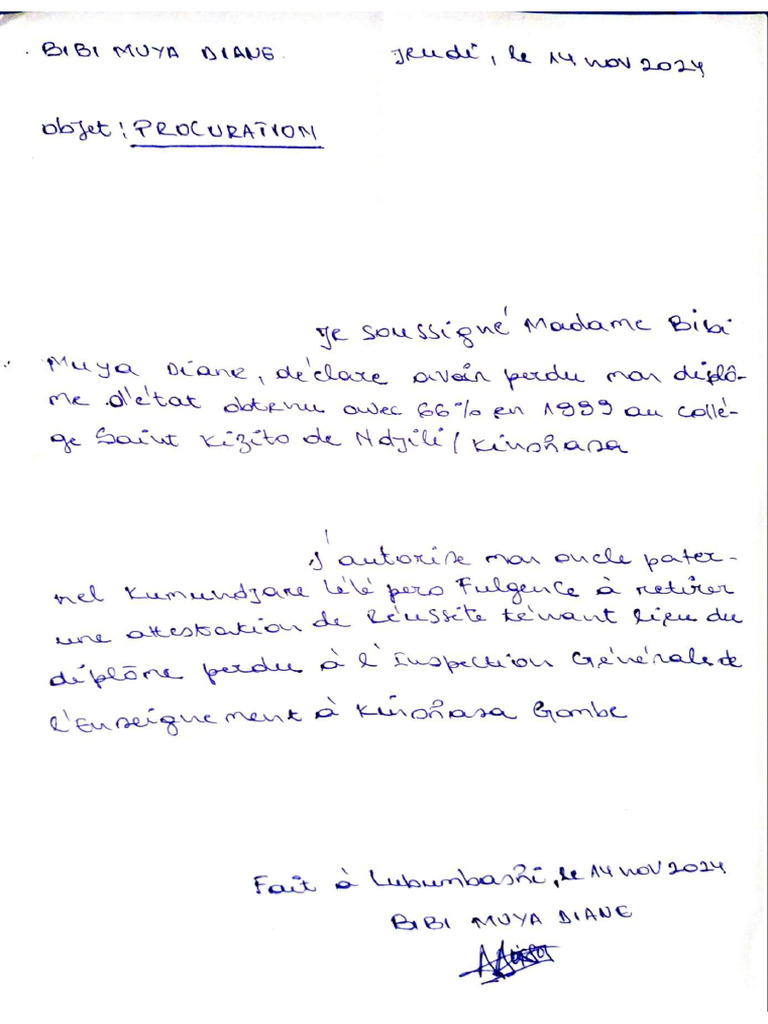 BIBI MUYA DIANE.
Jeudi, le 14 nov 2024
Objet : PROCURATION
Je soussigné Madame Bibi
Muya Diane, déclare avoir perdu mon diplô-
me d'état obtenu avec 66% en 1999 au collé-
ge Saint Kizito de Ndjili / Kinshasa
J'autorise mon oncle pater-
nel Kumundjare lélé pero Fulgence à retirer
une attestation de Réussite ténant lieu du
diplôme perdu à l'Inspection Générale de
l'Enseignement à Kinshasa Gombe
Fait à Lubumbashi, le 14 nov 2024
BIBI MUYA DIANE